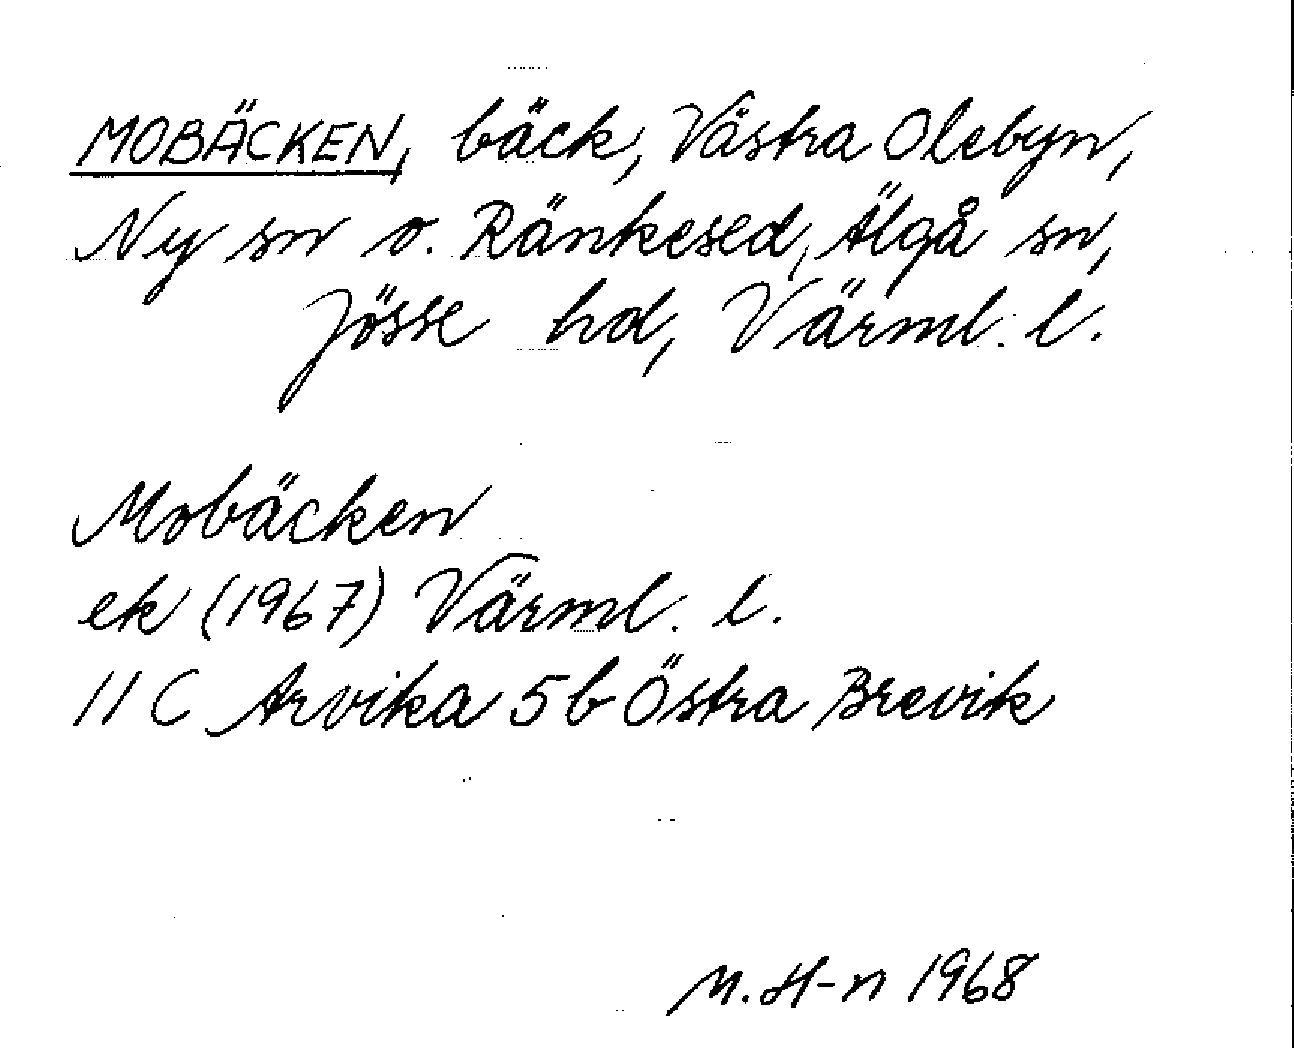 MOBÄCKEN, bäck, Västra Olebyn,
Ny sn o. Ränkesed, Älgå sn,
Jösse hd, Värml. l.
Mobäcken
ek (1967) Värml. l.
11 C Arvika 5b Östra Brevik
M. H-n 1968